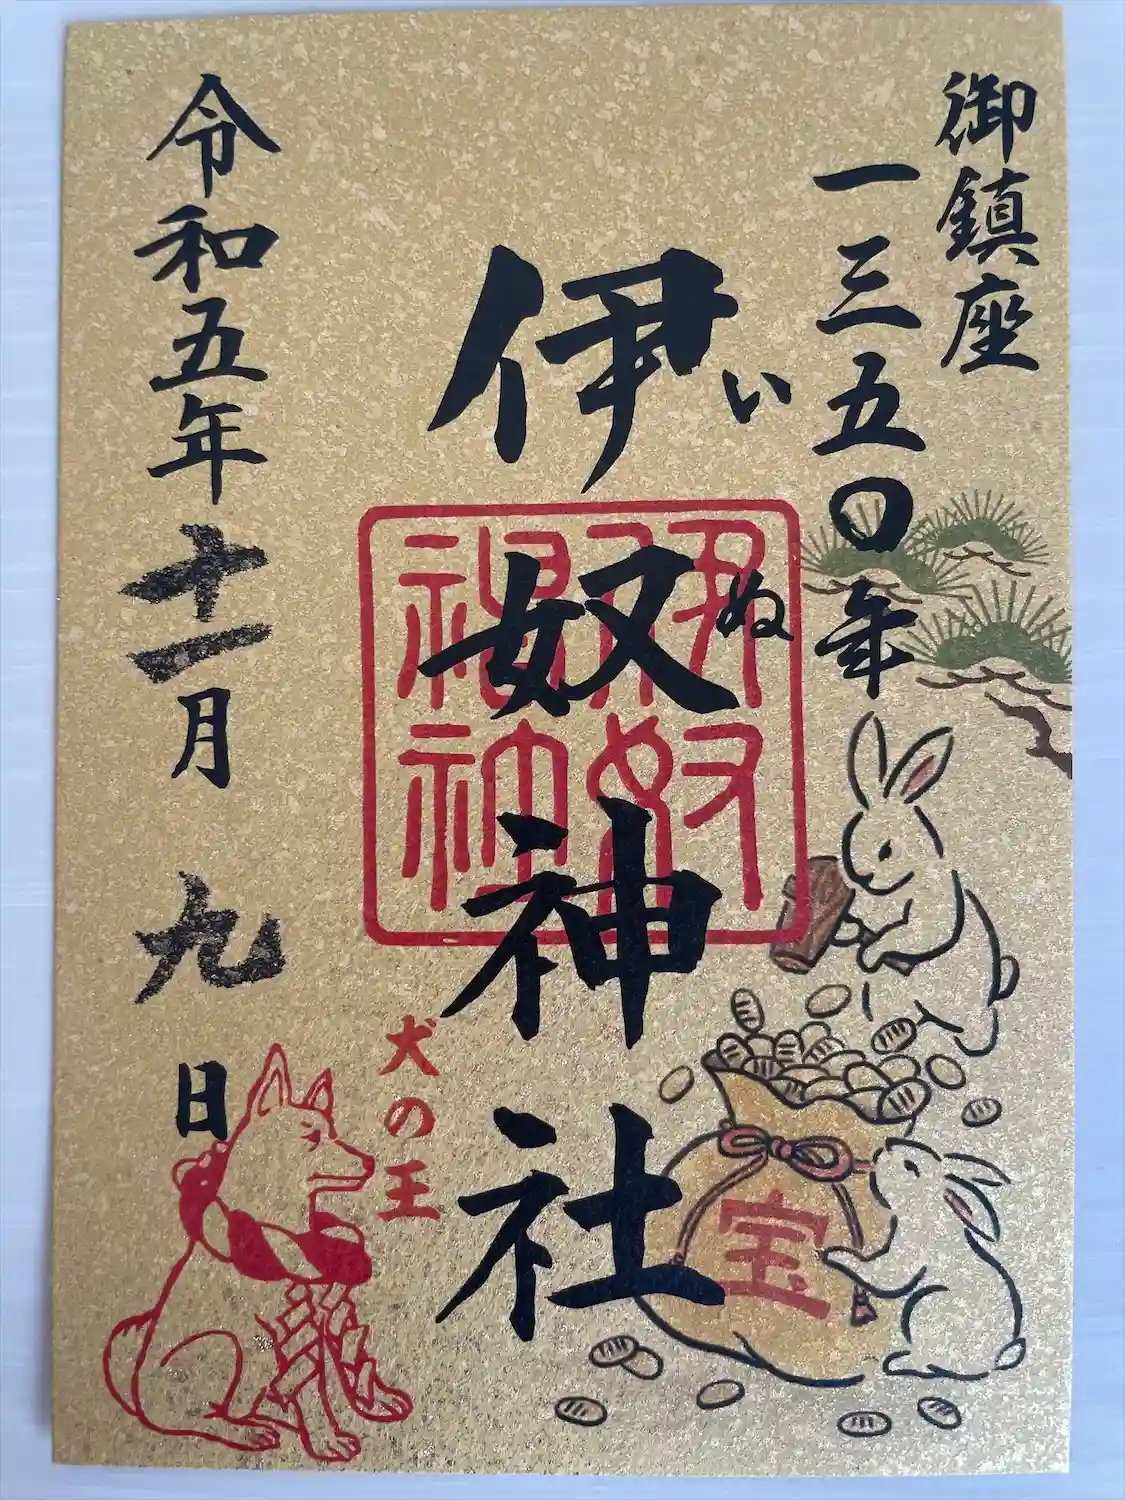 御鎮座
一三五〇年
伊奴神社
いぬ
伊奴
神社
宝
犬の王
令和五年十一月九日